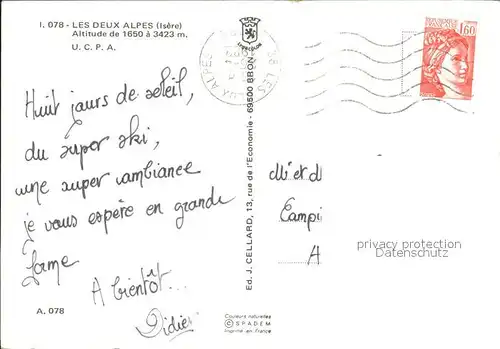 I. 078 - LES DEUX ALPES (Isère)
Altitude de 1650 à 3423 m.
U. C. P. A.
Huit jours de soleil,
du super ski,
une super ambiance
je vous espère en grande
forme
A bientôt...
Didier
A. 078
Ed. J. CELLARD, 13, rue de l'Economie - 69500 BRON
Couleurs naturelles
© SPADEM
Imprimé en France
38 LES DEUX ALPES
1,60
Mr et
Campi
A
privacy protection
Datenschutz